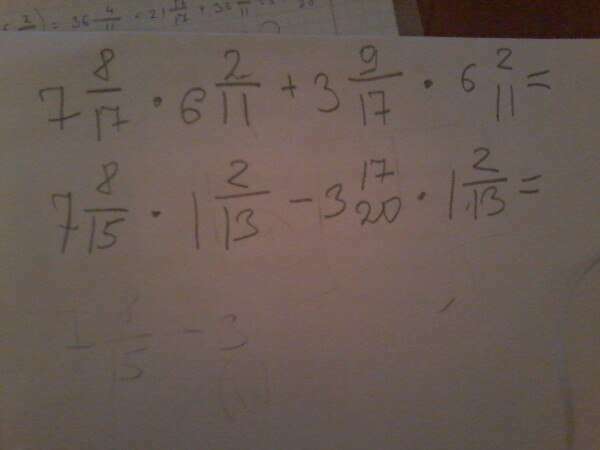 7 8/17 · 6 2/11 + 3 9/17 · 6 2/11 =
7 8/15 · 1 2/13 - 3 17/20 · 1 2/13 =